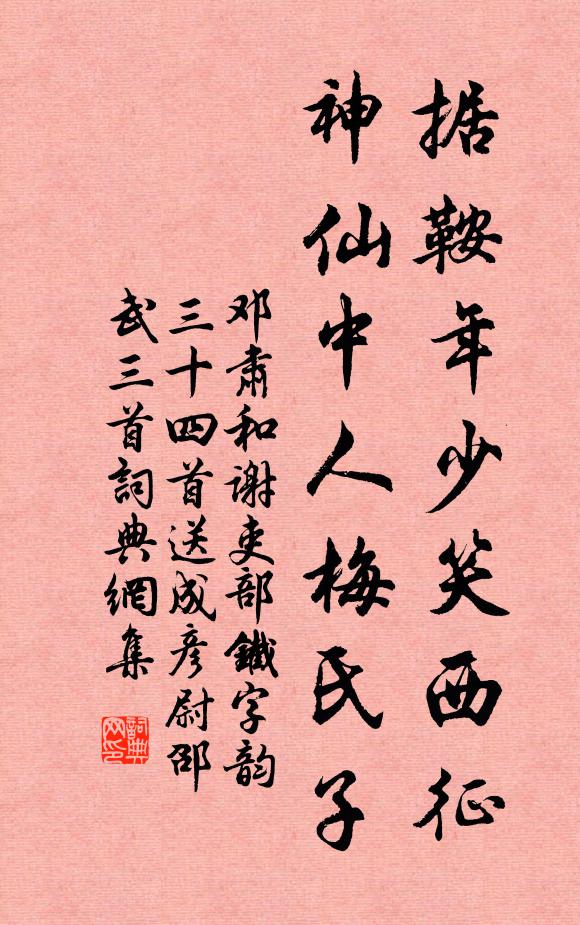 据鞍年少笑西征
神仙中人梅氏子
邓肃和谢吏部鐵字韵
三十四首送成彦尉邵
武三首詞典網集
詞典网印